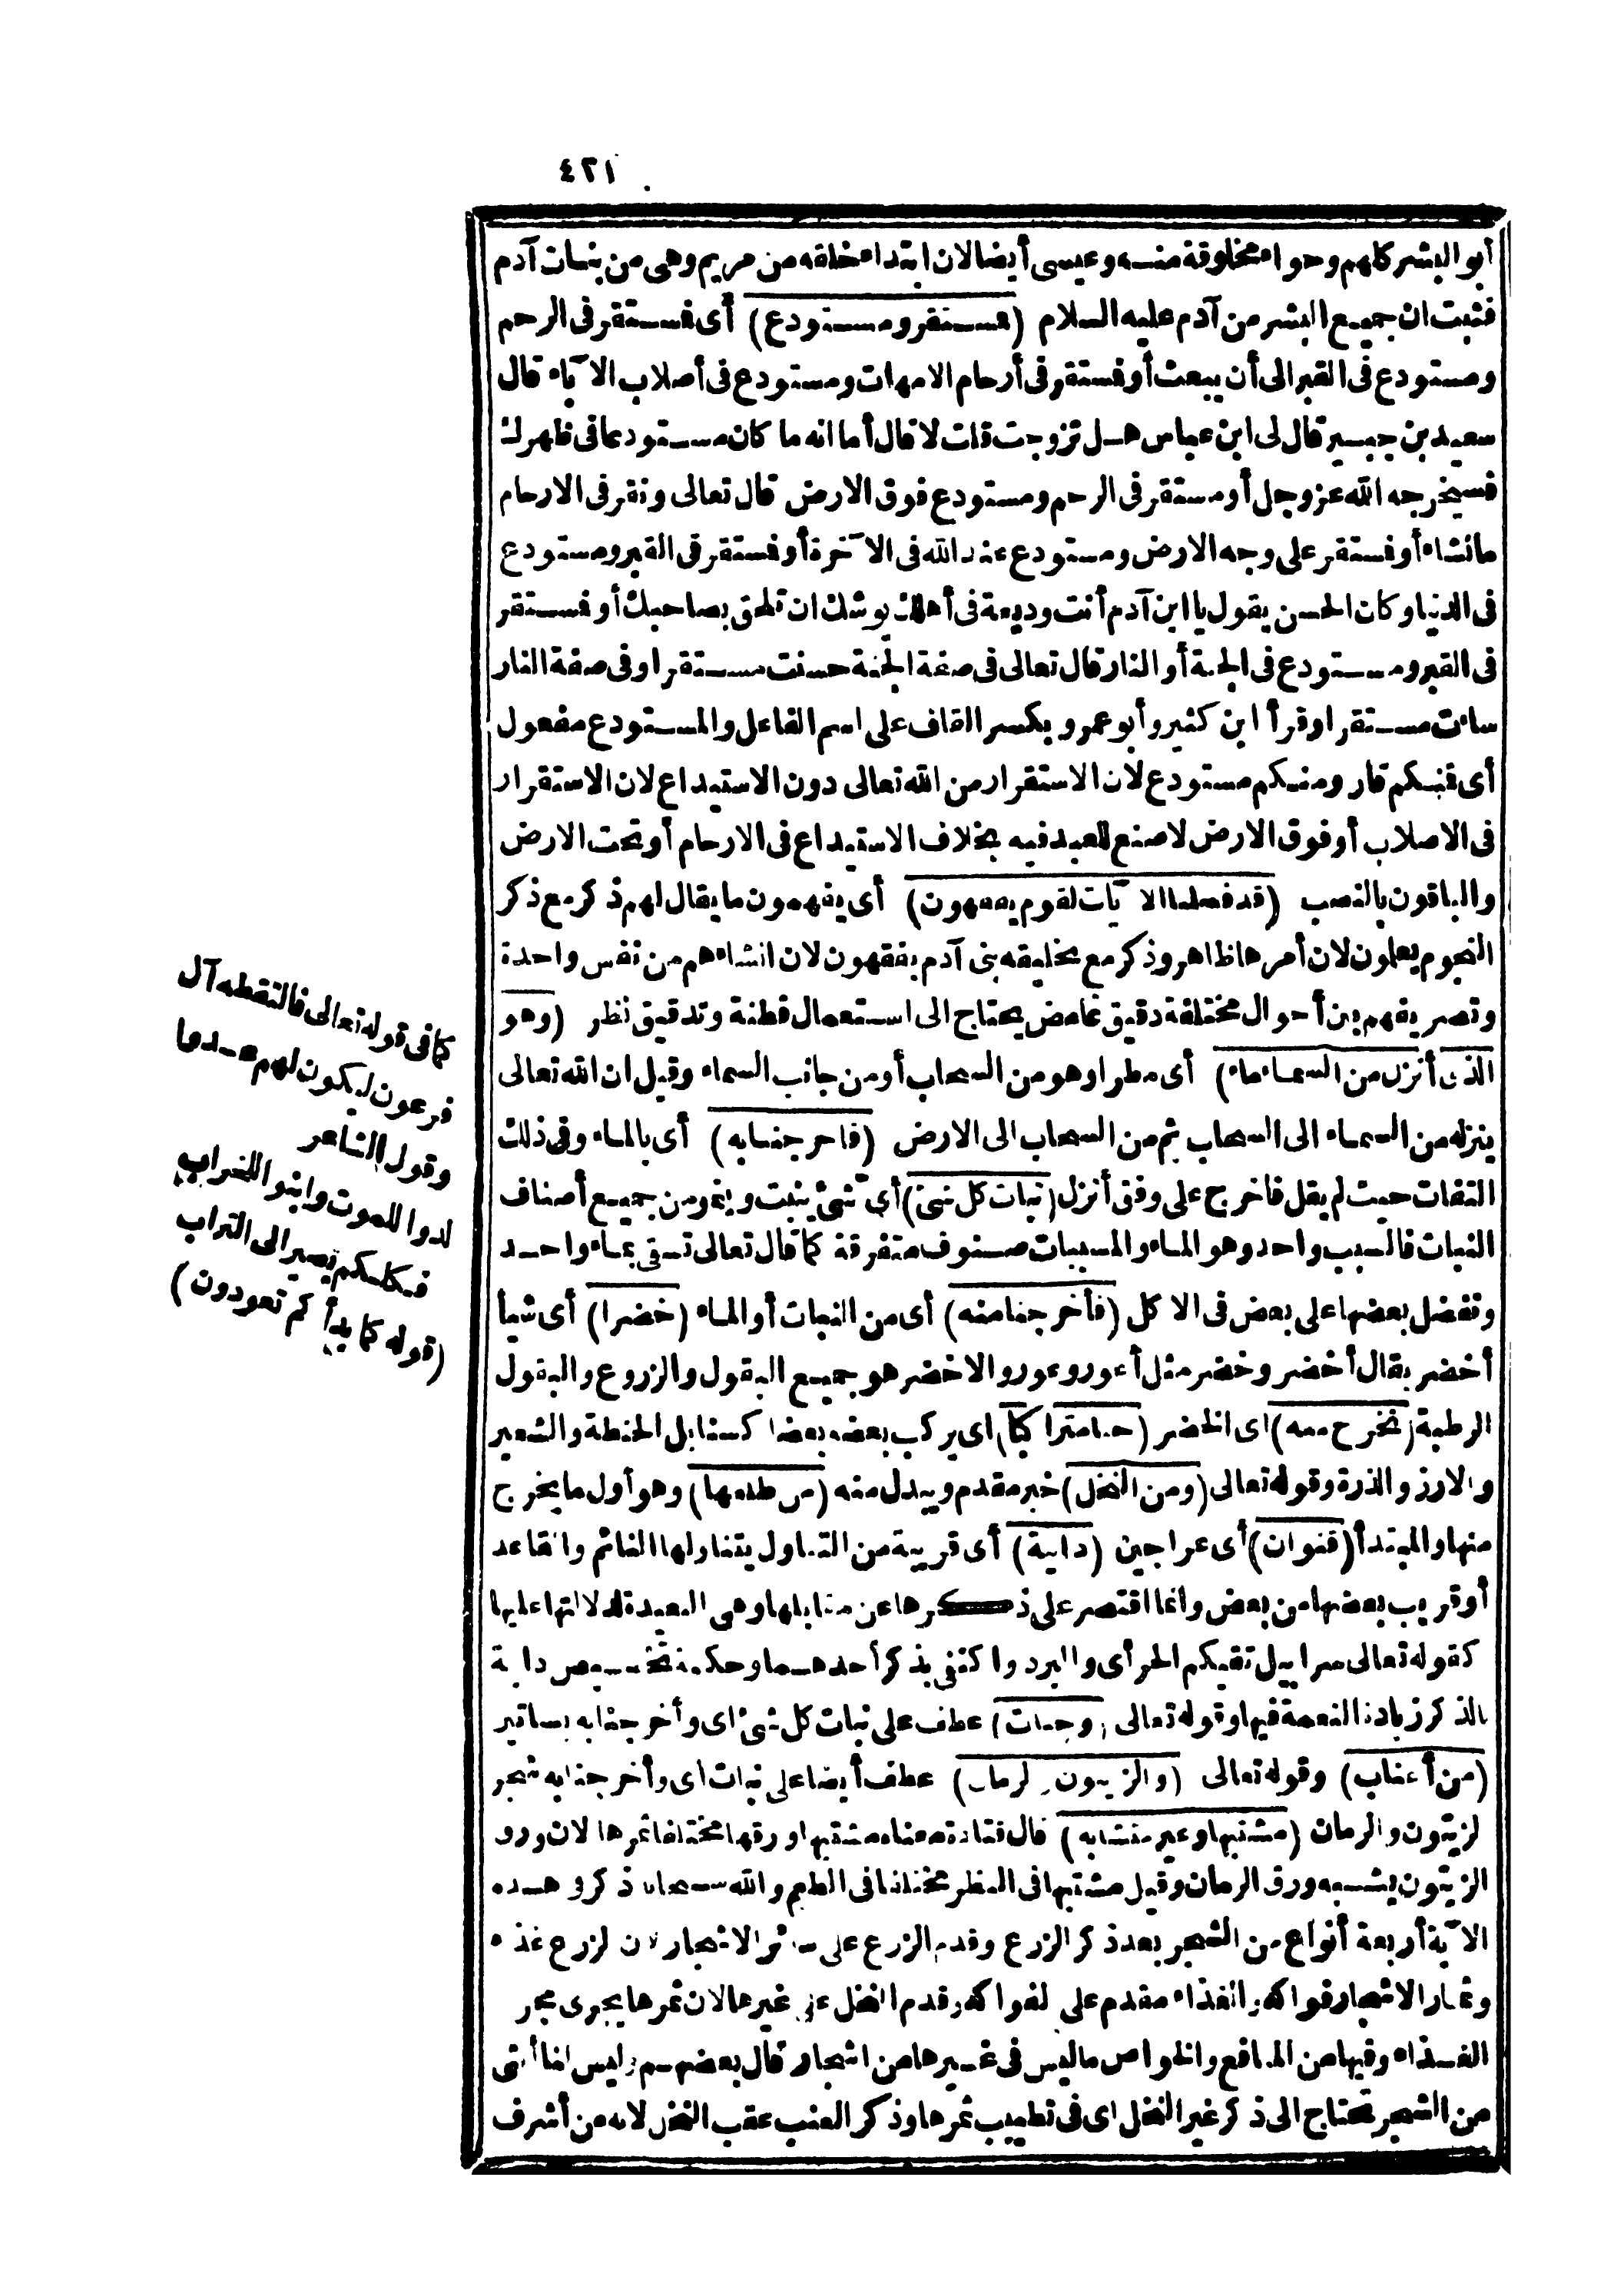 ٤٢١
أبو البشر كلهم وحواء مخلوقة منه وعيسى أيضا لان ابتداء خلقه من مريم وهى من بنات آدم
فثبت ان جميع البشر من آدم عليه السلام (فمستقر ومستودع) أى فمستقر فى الرحم
ومستودع فى القبر الى أن يبعث أو فستقر فى أرحام الامهات ومستودع فى أصلاب الآباء قال
سعيد بن جبير قال لى ابن عباس هل تزوجت قلت لا قال أما انه ما كان مستودعا فى ظهرك
فسيخرجه الله عز وجل أو مستقر فى الرحم ومستودع فوق الارض قال تعالى ونقر فى الارحام
ما نشاء أو فستقر على وجه الارض ومستودع عند الله فى الآخرة أو فستقر فى القبر ومستودع
فى الدنيا وكان الحسن يقول يا ابن آدم أنت وديعة فى أهلك يوشك ان تلحق بصاحبك أو فستقر
فى القبر ومستودع فى الجنة أو النار قال تعالى فى صفة الجنة حسنت مستقرا وفى صفة النار
ساءت مستقرا وقرأ ابن كثير وأبو عمرو بكسر القاف على اسم الفاعل والمستودع مفعول
أى فنكم قار ومنكم مستودع لان الاستقرار من الله تعالى دون الاستيداع لان الاستقرار
فى الاصلاب أو فوق الارض لا صنع للعبد فيه بخلاف الاستيداع فى الارحام أو تحت الارض
والباقون بالنصب (قد فصلنا الآيات لقوم يفقهون) أى يفهمون ما يقال لهم ذكر مع ذكر
النجوم يعلون لان أمرها ظاهر وذكر مع تخليقه بنى آدم يفقهون لان انشاءهم من نفس واحدة
وتصريفهم بين أحوال مختلفة دقيق غامض يحتاج الى استعمال فطنة وتدقيق نظر (وهو
الذى أنزل من السماء ماء) أى مطرا وهو من السحاب أو من جانب السماء وقيل ان الله تعالى
ينزله من السماء الى السحاب ثم من السحاب الى الارض (فأخرجنا به) أى بالماء وفى ذلك
التفات حيث لم يقل فاخرج على وفق أنزل (نبات كل شئ) أى شئ ينبت وينمو من جميع أصناف
النبات فالسبب واحد وهو الماء والمسببات صنوف متفرقة كما قال تعالى تسقى بماء واحد
ونفضل بعضها على بعض فى الاكل (فأخرجنا منه) أى من النبات أو الماء (خضرا) أى شيأ
أخضر يقال أخضر وخضر مثل أعور وعور والاخضر هو جميع البقول والزروع والبقول
الرطبة (نخرج منه) اى الخضر (حبا متراكبا) اى يركب بعضه بعضا كسنابل الحنطة والشعير
والارز والذرة وقوله تعالى (ومن النخل) خبر مقدم ويبدل منه (من طلعها) وهو أول ما يخرج
منها والمبتدأ (قنوان) أى عراجين (دانية) أى قريبة من التناول يتناولها القائم والقاعد
أو قريب بعضها من بعض وانما اقتصر على ذكرها عن مقابلها وهى البعيدة لدلالتها عليها
كقوله تعالى سرابيل تقيكم الحر أى والبرد واكتفى بذكر أحدهما وحكمة تخصيص دانية
بالذكر زيادة النعمة فيها وقوله تعالى (وجنات) عطف على نبات كل شئ اى وأخرجنا به بساتين
(من أعناب) وقوله تعالى (والزيتون والرمان) عطف أيضا على نبات اى وأخرجنا به شجر
الزيتون والرمان (مشتبها وغير متشابه) قال قتادة معناه مشتبها ورقها مختلفا ثمرها لان ورق
الزيتون يشبه ورق الرمان وقيل مشتبها فى المنظر مختلفا فى الطعم والله سبحانه ذكر فى هذه
الآية أربعة أنواع من الشجر بعد ذكر الزرع وقدم الزرع على سائر الاشجار لان الزرع غذاء
وثمار الاشجار فواكه والغذاء مقدم على الفواكه وقدم النخل على غيرها لان ثمرها يجرى مجرى
الغذاء وفيها من المنافع والخواص ما ليس فى غيرها من اشجار قال بعضهم وليس لنا أنثى
من الشجر تحتاج الى ذكر غير النخل اى فى تطييب ثمرها وذكر العنب عقب النخل لانه من أشرف
كما فى قوله تعالى فالتقطه آل
فرعون ليكون لهم عدوا
وقول الشاعر
لدوا للموت وابنوا للخراب
فكلكم يصير الى التراب
(قوله كما بدأكم تعودون)